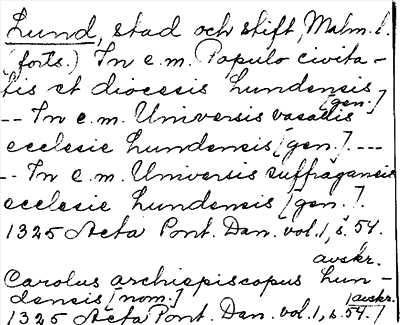 Lund, stad och stift, Malm. l.
(forts.) In e. m. Populo civita-
tis et diocesis Lundensis
[gen.]
-- In e. m. Universis vasallis
ecclesie Lundensis [gen.]. ---
-- In e. m. Universis suffraganeis
ecclesie Lundensis [gen.].
1325 Acta Pont. Dan. vol. 1, s. 54.
avskr.
Carolus archiepiscopus Lun-
densis [nom.]
[avskr.]
1325 Acta Pont. Dan. vol. 1, s. 54.